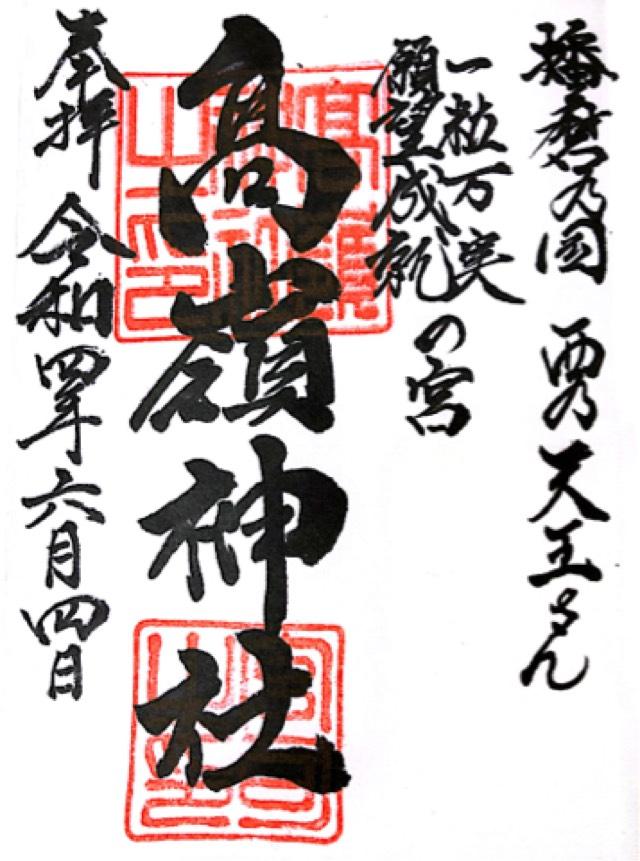 播磨乃国 西乃天王さん
一粒万実
願望成就
の宮
高嶺神社
奉拝 令和四年六月四日